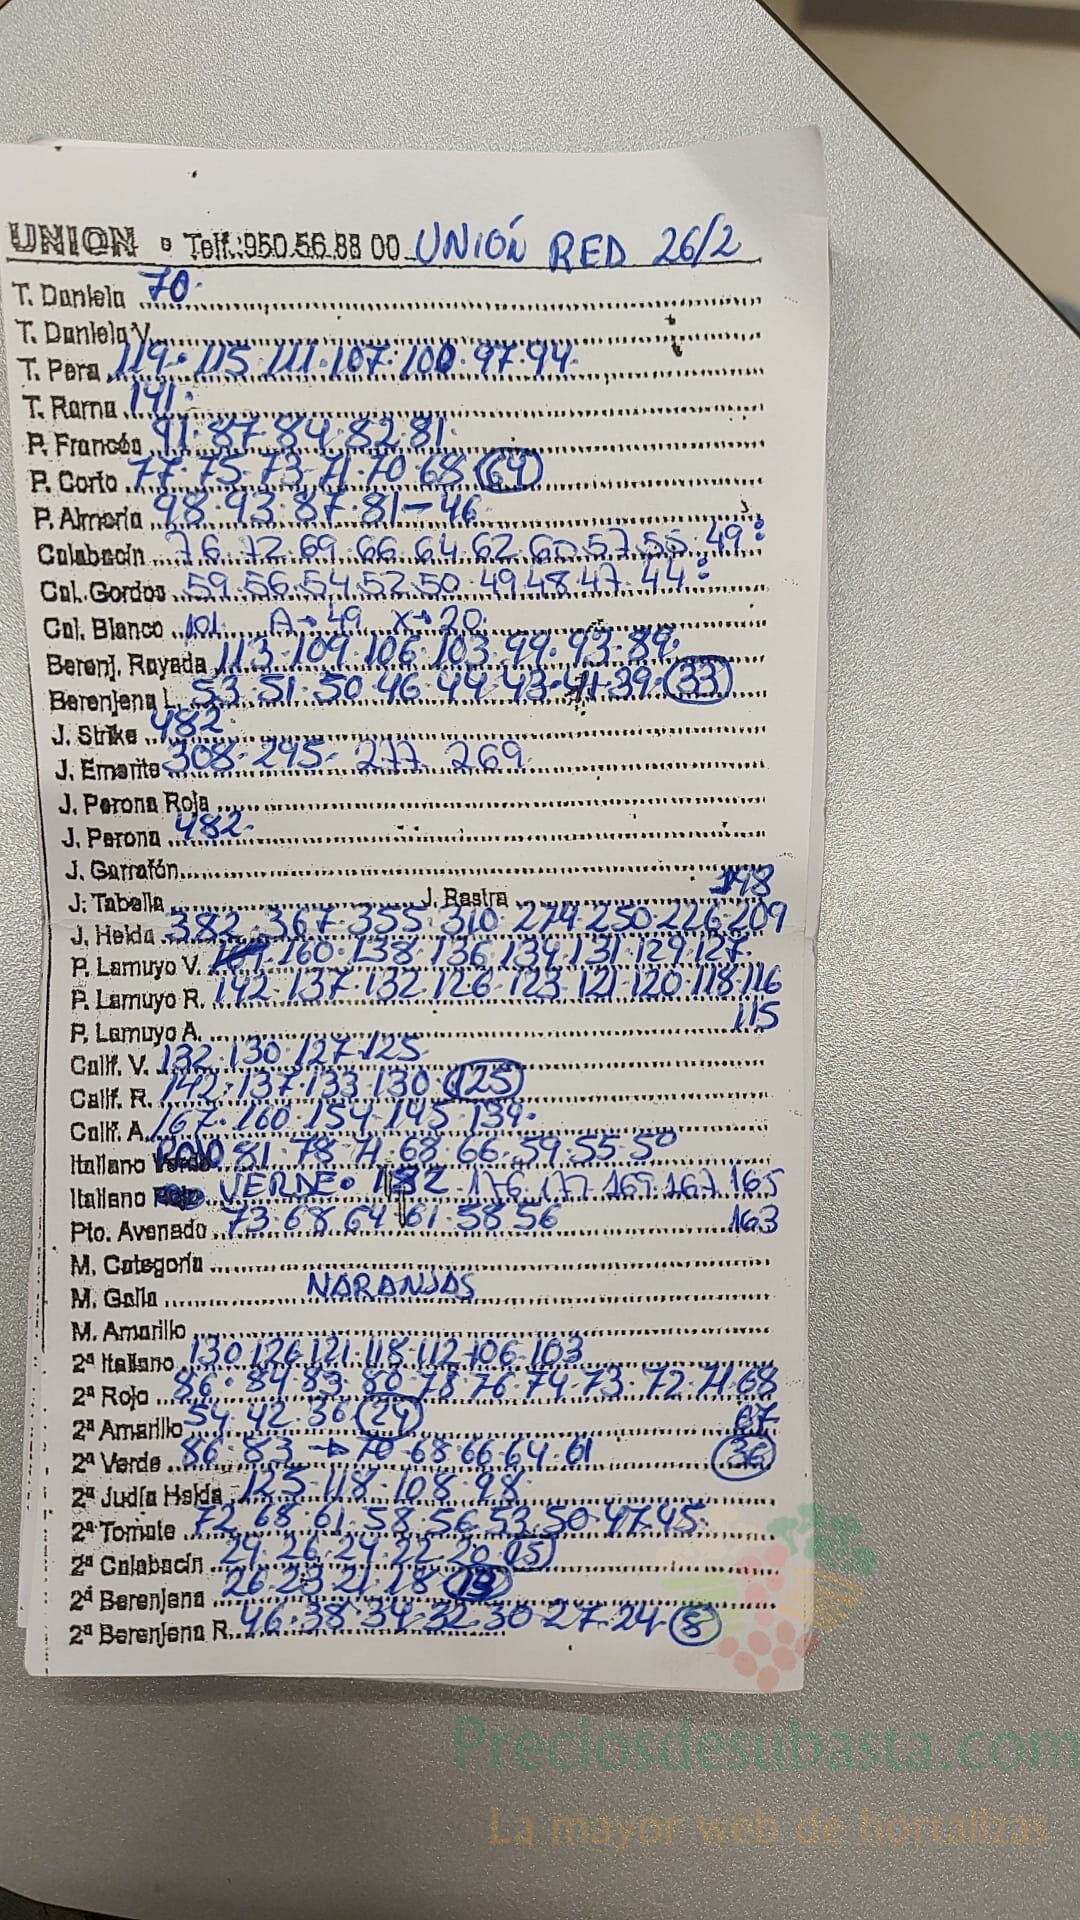 UNION Telf.:950.56.88 00 UNIÓN RED 26/2
T. Daniela 70.
T. Daniela V.
T. Pera 119. 115. 111. 107. 100. 97. 94.
T. Rama 141.
P. Francés 91. 87. 84. 82. 81.
P. Corto 77. 75. 73. 71. 70. 68 (64)
P. Almería 98. 93. 87. 81 - 46.
Calabacín 76. 72. 69. 66. 64. 62. 60. 57. 55. 49:
Cal. Gordos 59. 56. 54. 52. 50. 49. 48. 47. 44:
Cal. Blanco 101. A→49 X→20.
Berenj. Rayada 113. 109. 106. 103. 99. 93. 89.
Berenjena L. 53. 51. 50. 46. 44. 43. 41. 39. (33)
J. Strike 482.
J. Emerite 308. 295. 277. 269.
J. Perona Roja
J. Perona 482.
J. Garrafón
J. Tabella J. Rastra 198
J. Helda 382. 367. 355. 310. 274. 250. 226. 209
P. Lamuyo V. 160. 138. 136. 134. 131. 129. 127.
P. Lamuyo R. 142. 137. 132. 126. 123. 121. 120. 118. 116
P. Lamuyo A. 115
Calif. V. 132. 130. 127. 125
Calif. R. 142. 137. 133. 130 (125)
Calif. A. 167. 160. 154. 145. 139.
Italiano ROJO 81. 78. 71. 68. 66. 59. 55. 50
Italiano VERDE. 182. 176. 177. 169. 167. 165
Pto. Avenado 73. 68. 64. 61. 58. 56 163
M. Categoría
M. Galia NARANJAS
M. Amarillo
2ª Italiano 130. 126. 121. 118. 112. 106. 103
2ª Rojo 86. 84. 83. 80. 78. 76. 74. 73. 72. 71. 68
2ª Amarillo 54. 42. 36. (24) 67
2ª Verde 86. 83 → 70. 68. 66. 64. 61 (36)
2ª Judía Helda 125. 118. 108. 98.
2ª Tomate 72. 68. 61. 58. 56. 53. 50. 47. 45.
2ª Calabacín 29. 26. 24. 22. 20. (15)
2ª Berenjena 26. 23. 21. 18 (13)
2ª Berenjena R. 46. 38. 34. 32. 30. 27. 24. (8)
Preciosdesubasta.com
La mayor web de hortalizas